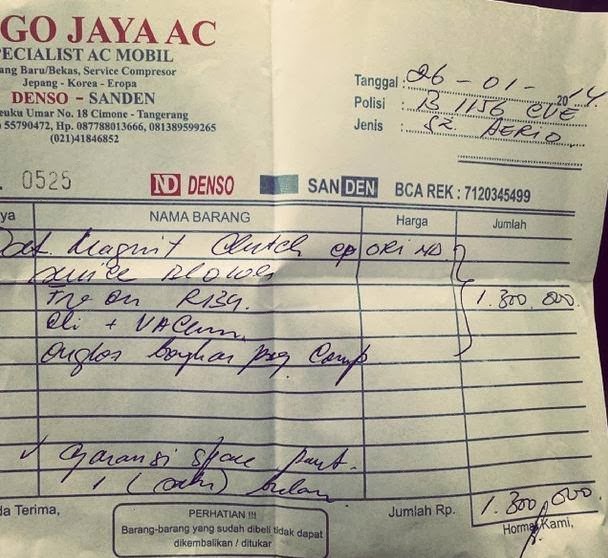 GO JAYA AC
PECIALIST AC MOBIL
ang Baru/Bekas, Service Compresor
Jepang - Korea - Eropa
DENSO - SANDEN
euku Umar No. 18 Cimone - Tangerang
55790472, Hp. 087788013666, 081389599265
(021)41846852
Tanggal : 26 - 01 - 2014
Polisi : B 1156 CUE
Jenis : SZ. AERIO
0525
ND DENSO
SANDEN
BCA REK : 7120345499
ya NAMA BARANG Harga Jumlah
Magnit Clutch ORI ND.
Blower
Freon R134.
Oli + VACUum.
ongkos bongkar psg Comp
1.300.000.
✓ garansi spare part.
1 (satu) bulan
da Terima,
PERHATIAN !!!
Barang-barang yang sudah dibeli tidak dapat
dikembalikan / ditukar
Jumlah Rp. 1.300.000.
Hormat Kami,